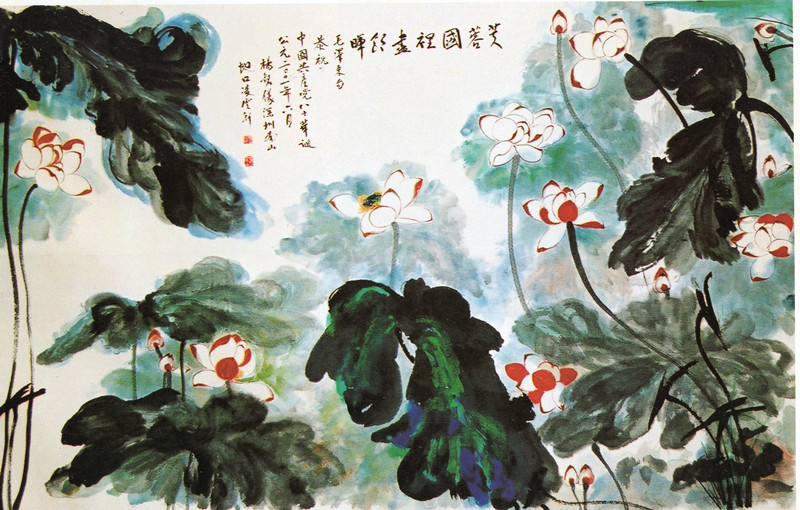 芙蓉國裡盡朝暉
毛澤東句
恭祝
中國共產党八十華誕
公元二〇〇一年六月
深圳山
湖口凌